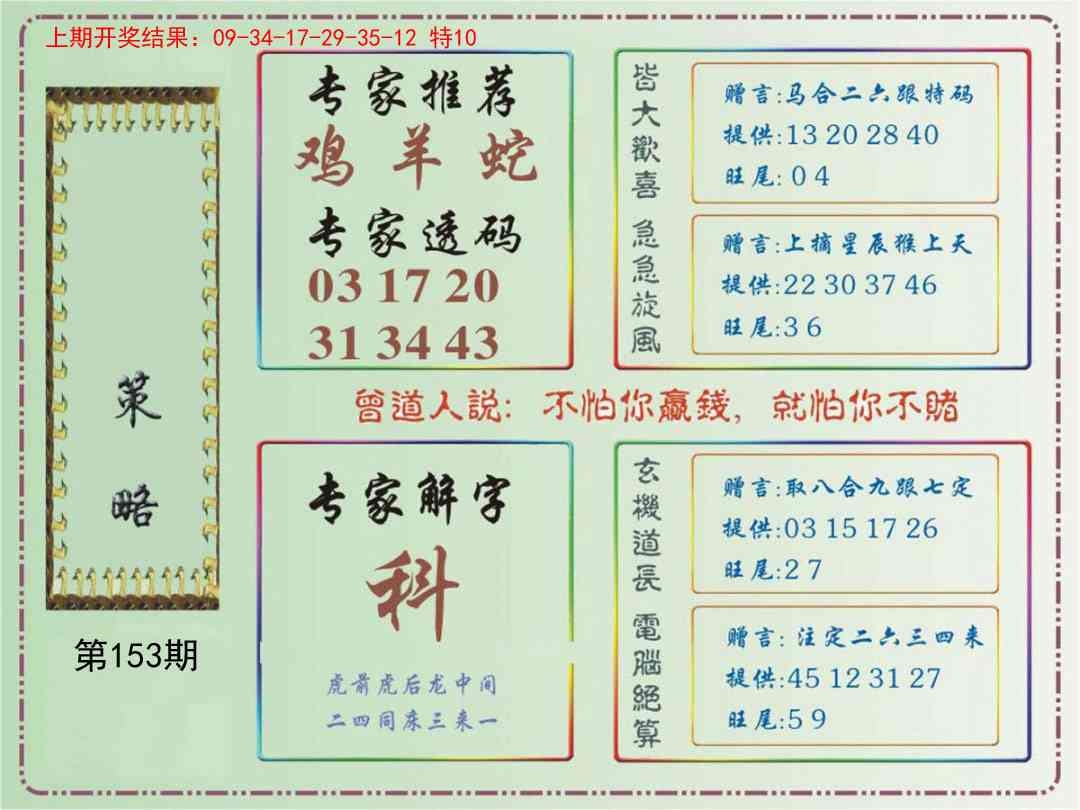 上期开奖结果：09-34-17-29-35-12 特10
策略
第153期
专家推荐
鸡 羊 蛇
专家透码
03 17 20
31 34 43
皆大歡喜
赠言:马合二六跟特码
提供:13 20 28 40
旺尾: 0 4
急急旋風
赠言:上摘星辰猴上天
提供:22 30 37 46
旺尾:3 6
曾道人説: 不怕你贏錢, 就怕你不賭
专家解字
科
虎前虎后龙中间
二四同床三来一
玄機道長
赠言:取八合九跟七定
提供:03 15 17 26
旺尾:2 7
電腦絕算
赠言: 注定二六三四来
提供:45 12 31 27
旺尾:5 9